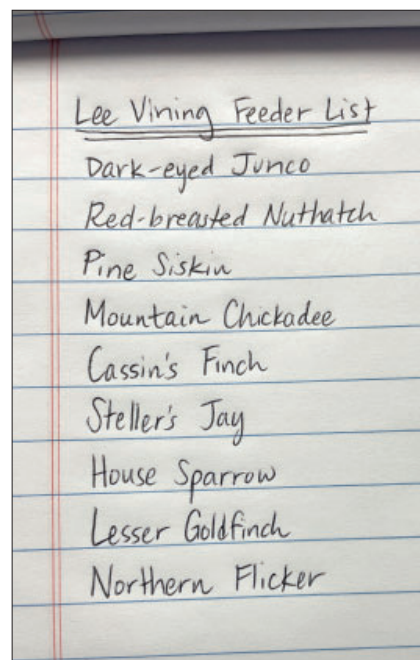 Lee Vining Feeder List
Dark-eyed Junco
Red-breasted Nuthatch
Pine Siskin
Mountain Chickadee
Cassin's Finch
Steller's Jay
House Sparrow
Lesser Goldfinch
Northern Flicker